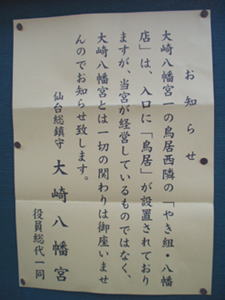 お知らせ
大崎八幡宮一の鳥居西隣の「やき組・八幡
店」は、入口に「鳥居」が設置されており
ますが、当宮が経営しているものではなく、
大崎八幡宮とは一切の関わりは御座いませ
んのでお知らせ致します。
仙台総鎮守 大崎八幡宮
役員総代一同